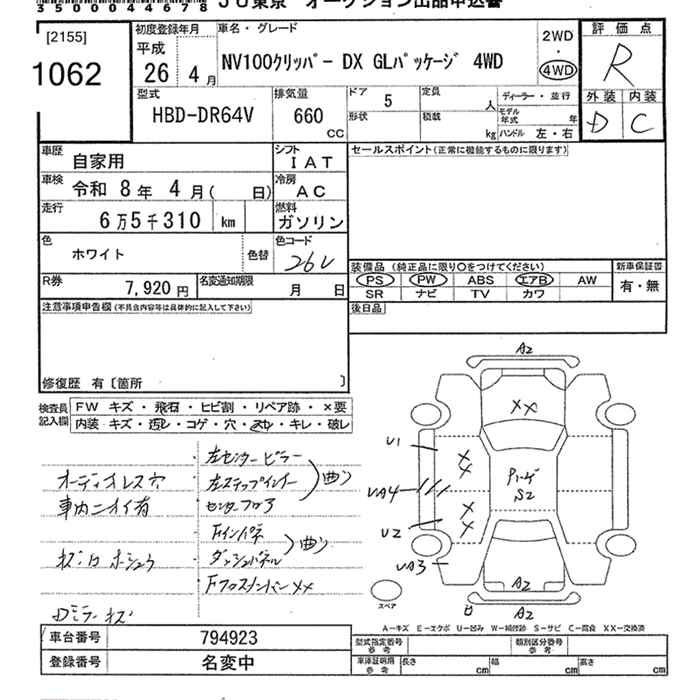 35000044678
JU東京 オークション出品申込書
[2155]
1062
初度登録年月
平成
26 4月
車名・グレード
NV100クリッパー DX GLパッケージ 4WD
2WD
・
4WD
評価点
R
外装 内装
D C
型式
HBD-DR64V
排気量
660
CC
ドア
5
形状
定員
人
積載
kg
ディーラー・並行
モデル年式 年
ハンドル 左・右
車歴
自家用
シフト
IAT
車検
令和 8年 4月( 日)
冷房
AC
走行
6万5千310 km
燃料
ガソリン
色
ホワイト
色替
色コード
26U
R券
7,920円
名変通知期限
月 日
セールスポイント(正常に機能するものに限ります)
装備品 (純正品に限り○をつけてください)
PS PW ABS エアB AW
SR ナビ TV カワ
新車保証書
有・無
後日品
注意事項申告欄(不具合内容等は具体的に記入して下さい)
修復歴 有〔箇所 〕
検査員記入欄
FW キズ・飛石・ヒビ割・リペア跡・×要
内装 キズ・汚レ・コゲ・穴・スレ・キレ・破レ
オーディオレス穴
車内ニオイ有
キズ凹ホシュウ
Dミラーキズ
左センターピラー
左ステップインナー
センターフロア
曲り
Fインパネ
ダッシュパネル
曲り
Fクロスメンバー××
A2
××
U1
××
UA4
Pルーフ
S2
U2
××
UA3
A2
A2
スペア
A―キズ E―エクボ U―凹み W―補修跡 S―サビ C―腐食 XX―交換済
車台番号 794923
登録番号 名変中
型式指定番号 参考
類別区分番号 参考
車庫証明用 参考
長さ cm
幅 cm
高さ cm